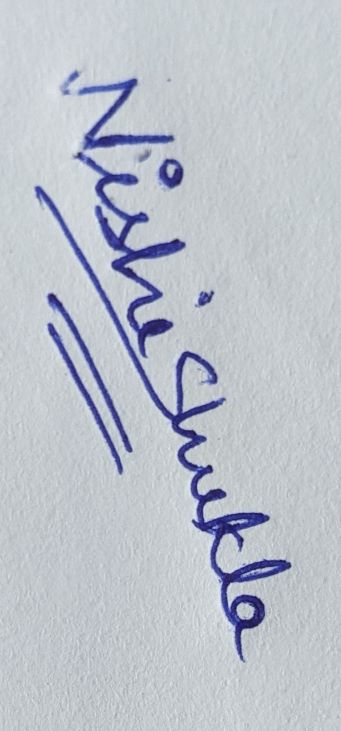 Nishi Shukla